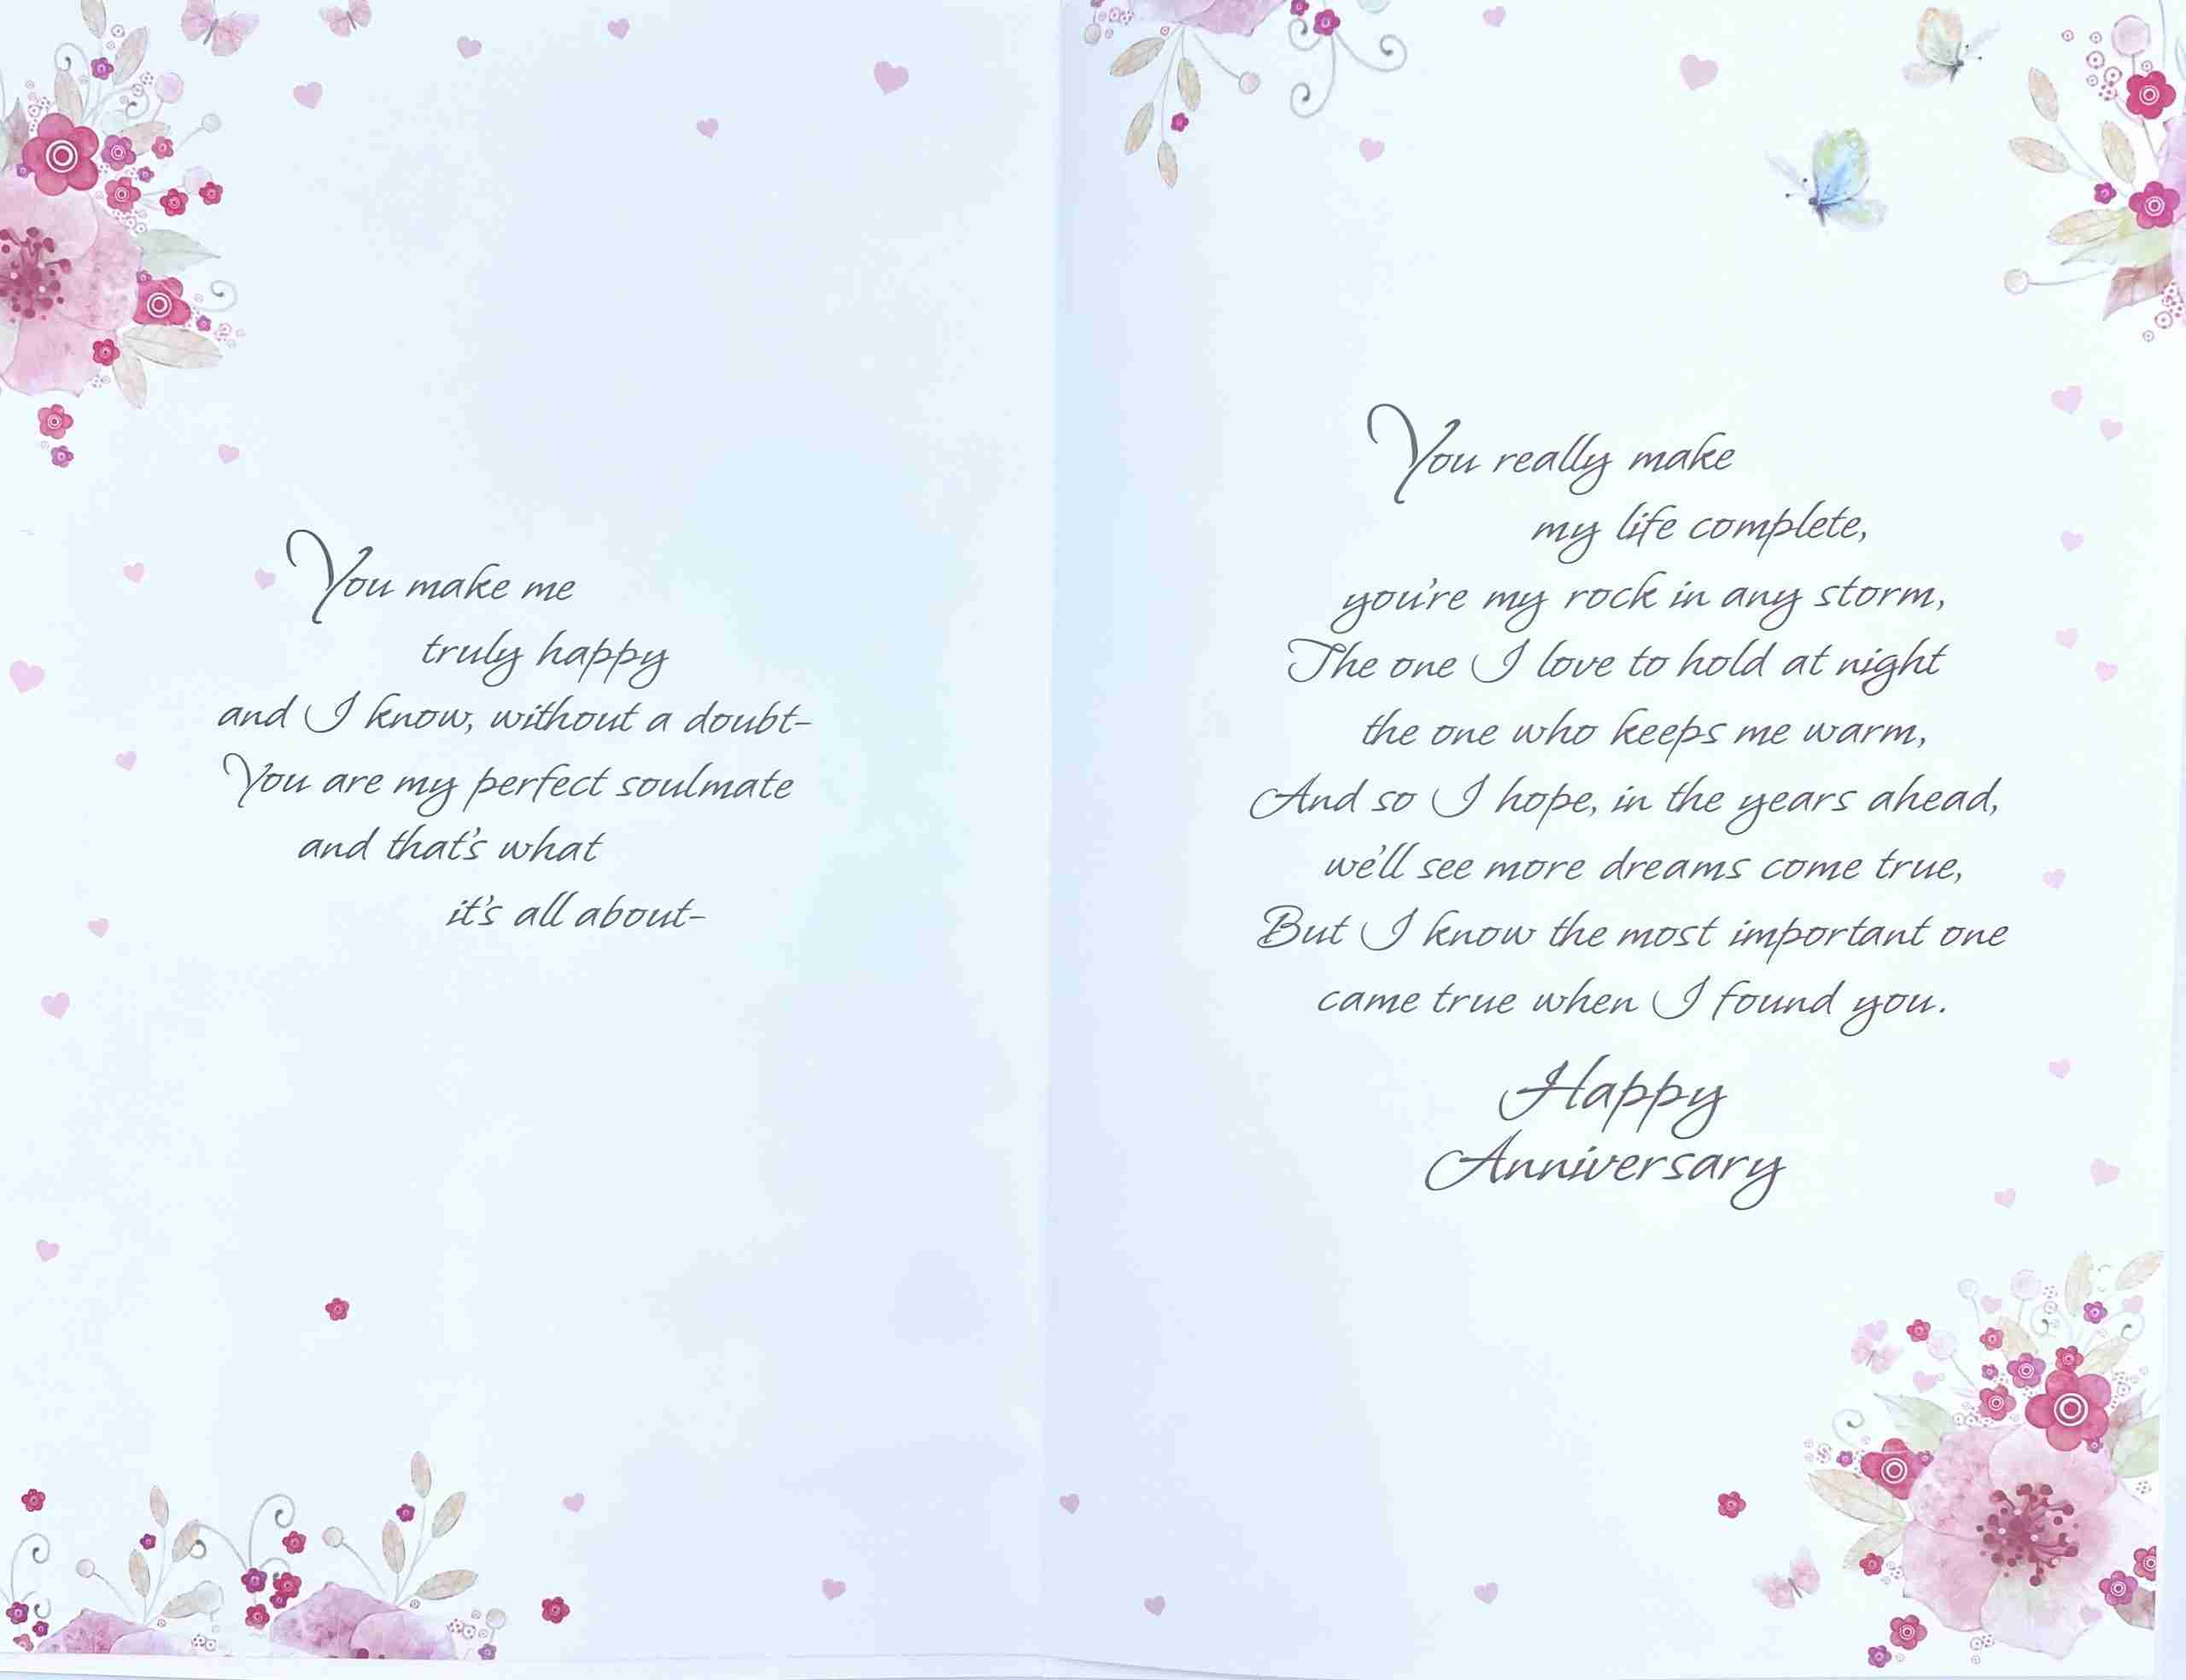 You make me
truly happy
and I know, without a doubt-
You are my perfect soulmate
and that's what
it's all about-
You really make
my life complete,
you're my rock in any storm,
The one I love to hold at night
the one who keeps me warm,
And so I hope, in the years ahead,
we'll see more dreams come true,
But I know the most important one
came true when I found you.
Happy
Anniversary